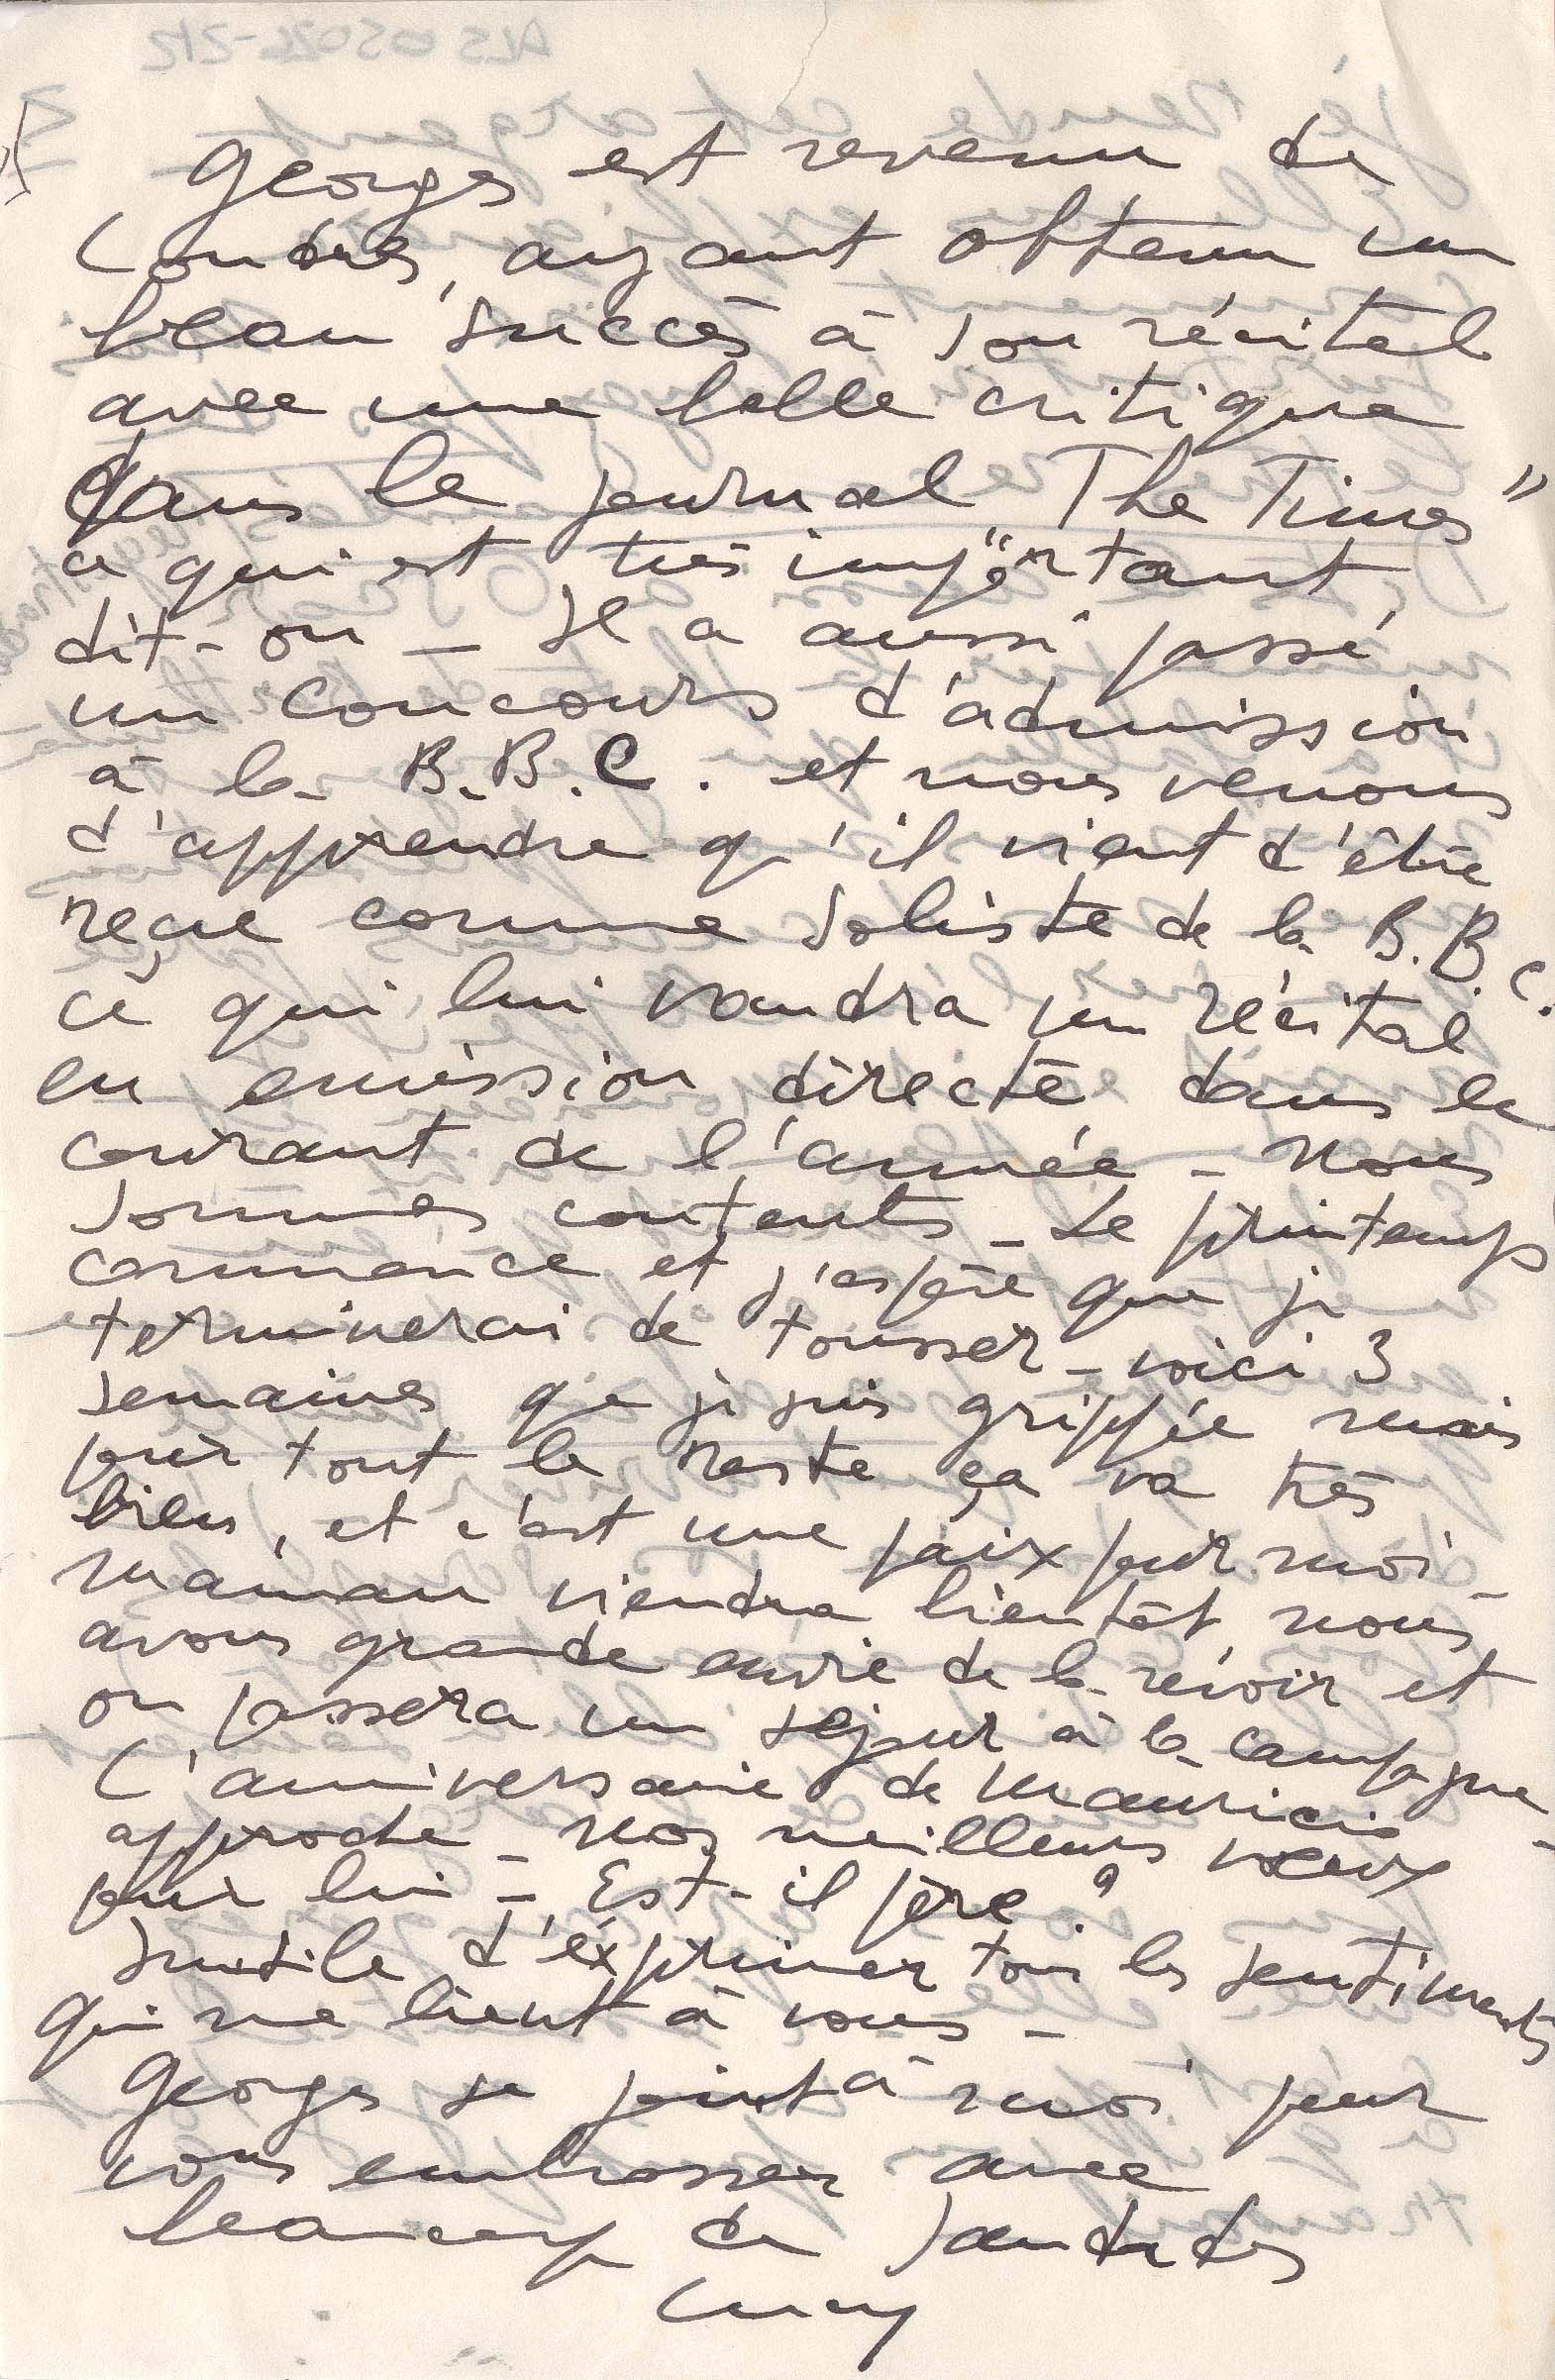 Georges est revenu de
Londres, ayant obtenu un
beau succès à son récital
avec une belle critique
dans le journal "The Times"
ce qui est très important
dit-on _ Il a aussi passé
un concours d'admission
à la B.B.C. et nous venons
d'apprendre qu'il vient d'être
reçu comme soliste de la B.B.C.
ce qui lui vaudra un récital
en émission directe dans le
courant de l'année _ Nous
sommes contents _ Le printemps
commence et j'espère que je
terminerai de tousser _ voici 3
semaines que je suis grippée mais
pour tout le reste ça va très
bien, et c'est une paix pour moi _
Maman viendra bientôt, nous
avons grande envie de la revoir et
on passera un séjour à la campagne _
L'anniversaire de Mauricio
approche _ Nos meilleurs vœux
pour lui _ Est-il père ?
Inutile d'exprimer tous les sentiments
qui me lient à vous _
Georges se joint à moi pour
vous embrasser avec
beaucoup de
Lucy
ALS 05022-212